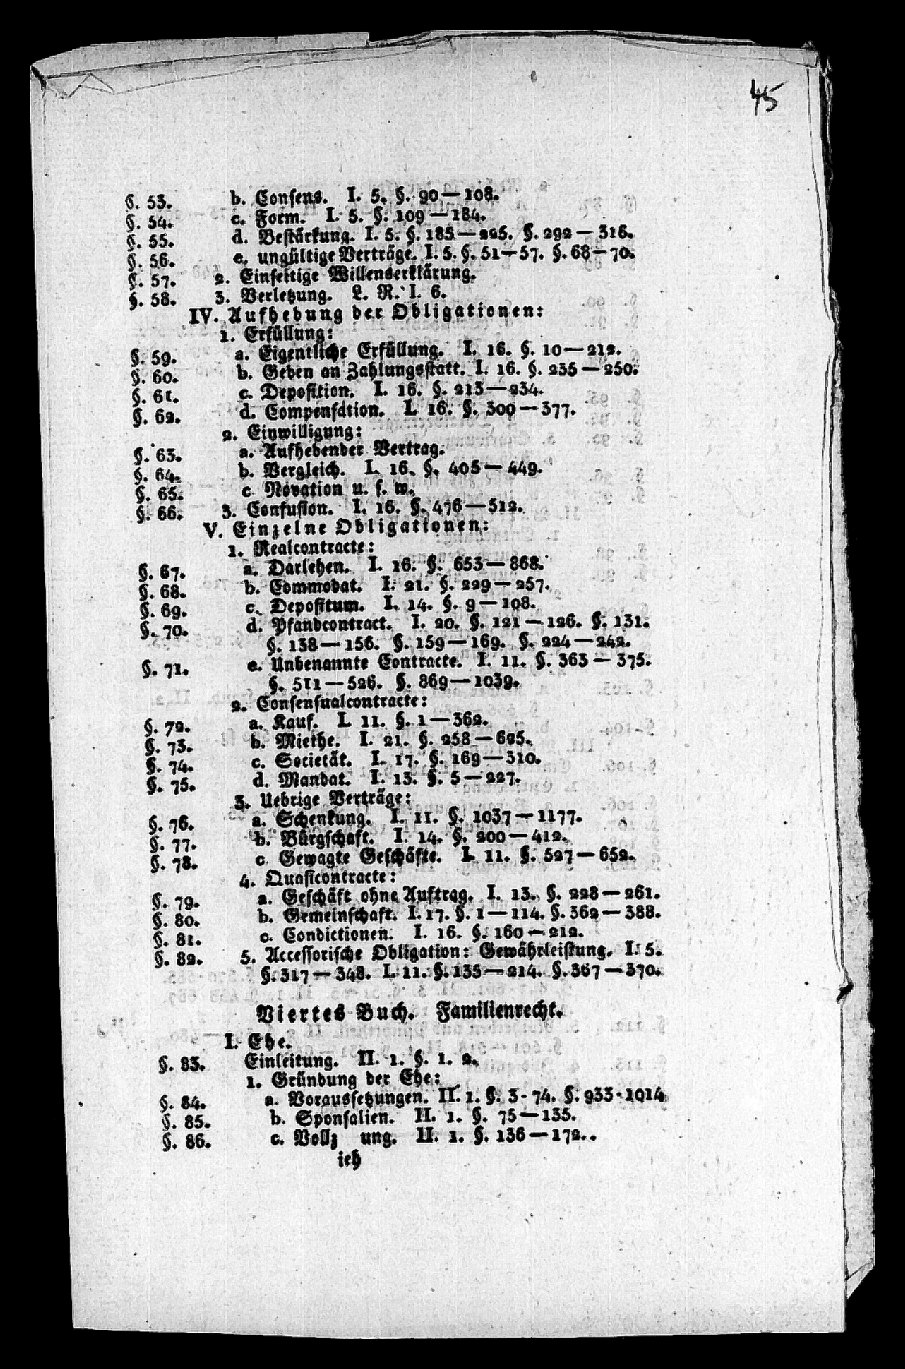 45
§. 53. b. Consens. I. 5. §. 90—108.
§. 54. c. Form. I. 5. §. 109—184.
§. 55. d. Bestärkung. I. 5. §. 185—225. §. 292—316.
§. 56. e. ungültige Verträge. I. 5. §. 51—57. §. 68—70.
§. 57. 2. Einseitige Willenserklärung.
§. 58. 3. Verletzung. L. R. I. 6.
IV. Aufhebung der Obligationen:
1. Erfüllung:
§. 59. a. Eigentliche Erfüllung. I. 16. §. 10—212.
§. 60. b. Geben an Zahlungsstatt. I. 16. §. 235—250.
§. 61. c. Deposition. I. 16. §. 213—234.
§. 62. d. Compensation. I. 16. §. 300—377.
2. Einwilligung:
§. 63. a. Aufhebender Vertrag.
§. 64. b. Vergleich. I. 16. §. 405—449.
§. 65. c Novation u. s. w.
§. 66. 3. Confusion. I. 16. §. 476—512.
V. Einzelne Obligationen:
1. Realcontracte:
§. 67. a. Darlehen. I. 16. §. 653—868.
§. 68. b. Commodat. I. 21. §. 229—257.
§. 69. c. Depositum. I. 14. §. 9—108.
§. 70. d. Pfandcontract. I. 20. §. 121—126. §. 131.
§. 138—156. §. 159—169. §. 224—242.
§. 71. e. Unbenannte Contracte. I. 11. §. 363—375.
§. 511—526. §. 869—1039.
2. Consensualcontracte:
§. 72. a. Kauf. I. 11. §. 1—362.
§. 73. b. Miethe. I. 21. §. 258—625.
§. 74. c. Societät. I. 17. §. 169—310.
§. 75. d. Mandat. I. 13. §. 5—227.
3. Uebrige Verträge:
§. 76. a. Schenkung. I. 11. §. 1037—1177.
§. 77. b. Bürgschaft. I. 14. §. 200—412.
§. 78. c. Gewagte Geschäfte. I. 11. §. 527—652.
4. Quasicontracte:
§. 79. a. Geschäft ohne Auftrag. I. 13. §. 228—261.
§. 80. b. Gemeinschaft. I. 17. §. 1—114. §. 362—388.
§. 81. c. Condictionen. I. 16. §. 160—212.
§. 82. 5. Accessorische Obligation: Gewährleistung. I. 5.
§. 317—348. I. 11. §. 135—214. §. 367—370.
Viertes Buch. Familienrecht.
I. Ehe.
§. 83. Einleitung. II. 1. §. 1. 2.
1. Gründung der Ehe:
§. 84. a. Voraussetzungen. II. 1. §. 3-74. §. 933-1014
§. 85. b. Sponsalien. II. 1. §. 75—135.
§. 86. c. Vollz ung. II. 1. §. 136—172.
ieh